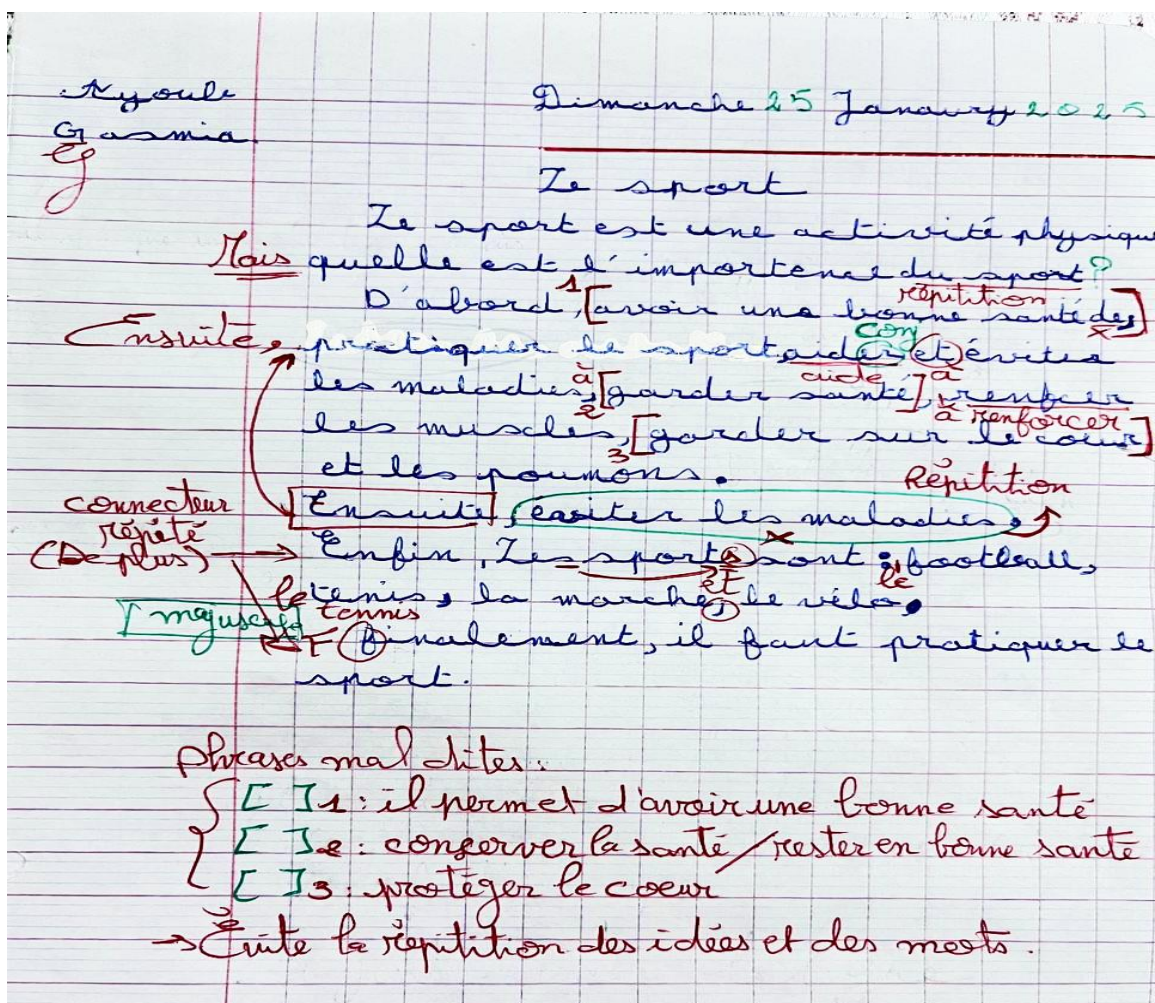 Ayoub
Dimanche 25 Janaury 2025
Gasmia
Le sport
Le sport est une activité physique
Mais quelle est l'importence du sport ?
répitition
D'abord, 1 [avoir une bonne santé des]
con
Ensuite, pratiquer le sport aider et évites
à aide à
les maladies, 2 [garder santé], renfcer
à renforcer
les muscles, 3 [garder sur le coeur]
et les poumons.
Répitition
Ensuite, évoiter les maladies,
connecteur
répété
(De plus)
Enfin, Les sports sont : football,
et le
le tenis, la marche, le vélo.
majuscule
tennis
F finalement, il faut pratiquer le
sport.
phrases mal dites :
[ ]1 : il permet d'avoir une bonne santé
[ ]2 : conserver la santé / rester en bonne santé
[ ]3 : protéger le coeur
→ Évite la répitition des idées et des mots.